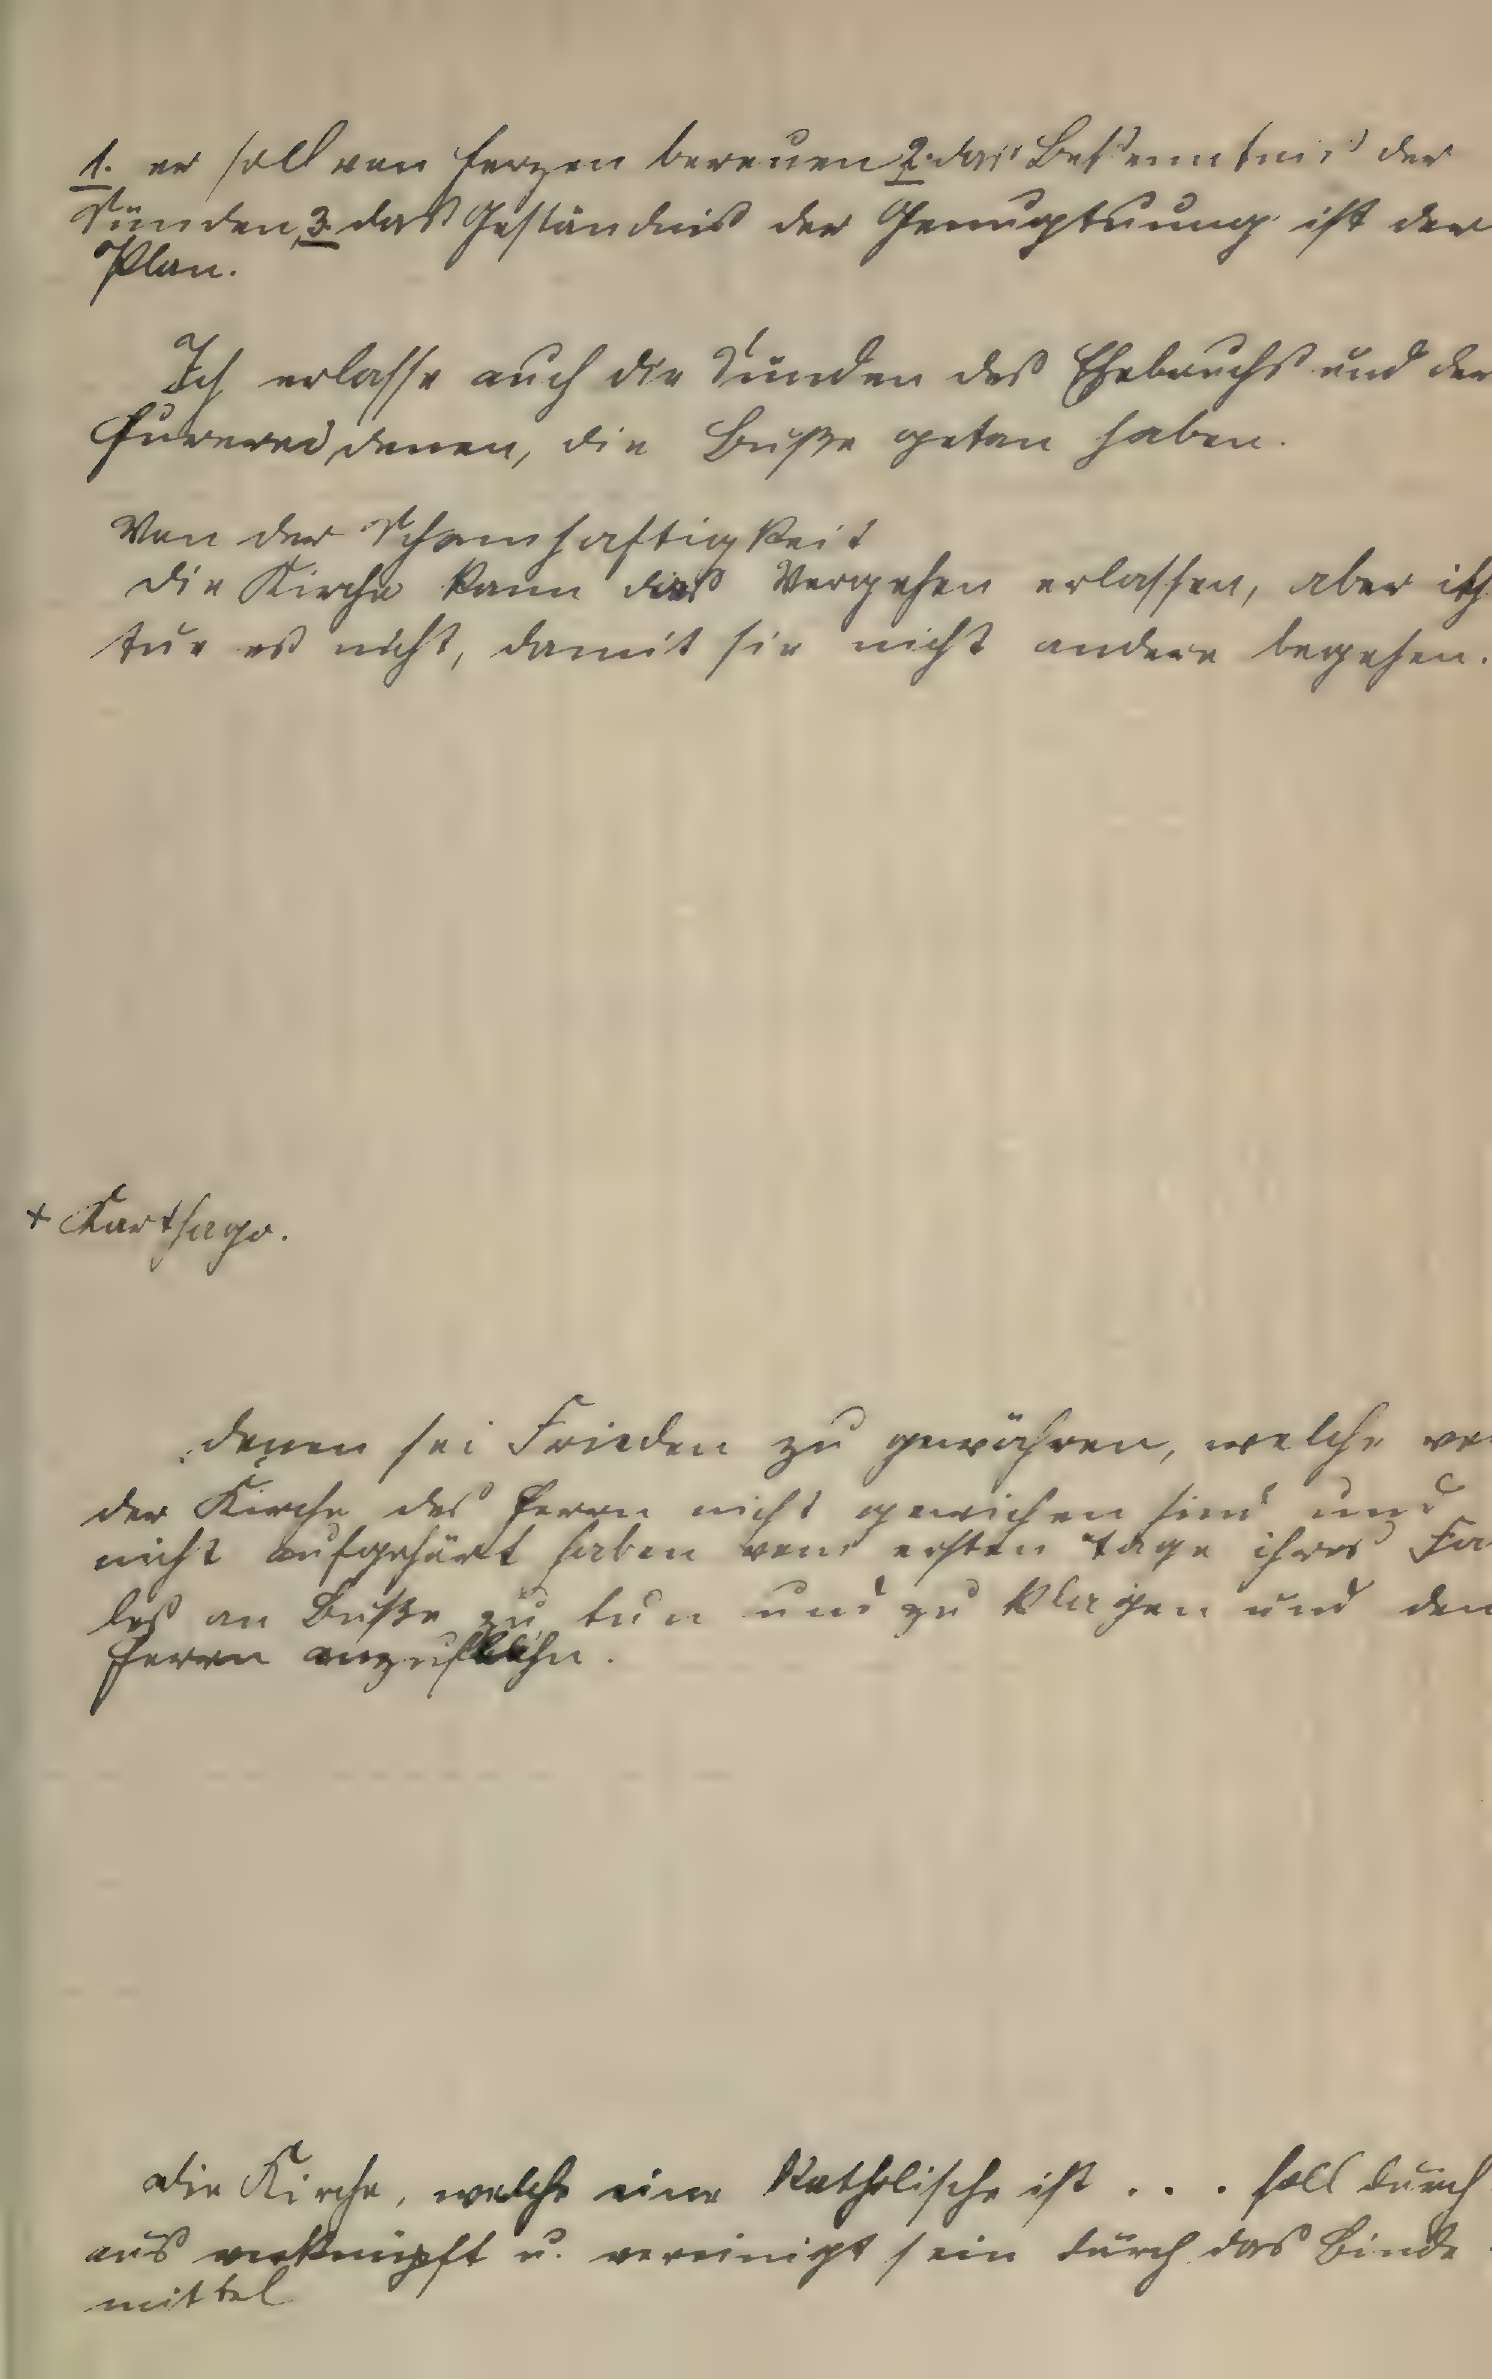 1. er soll von Herzen bereuen 2. das Bekenntnis der
Sünden, 3. das Geständnis der Genugtuung ist der
Plan.
Ich erlasse auch die Sünden des Ehebruchs und der
Hurerei denen, die Buße getan haben.
Von der Schamhaftigkeit
die Kirche kann das Vergehen erlassen, aber ich
tue es nicht, damit sie nicht andere begehen.
+ Karthago.
denen sei Frieden zu gewähren, welche vo
der Kirche des Herrn nicht gewichen sind und
nicht aufgehört haben vom ersten Tage ihres Fa
les an Buße zu tun und zu klagen und den
Herrn anzuflehn.
die Kirche, welche eine Katholische ist . . . soll durch
aus verknüpft u. vereinigt sein durch das Binde
mittel